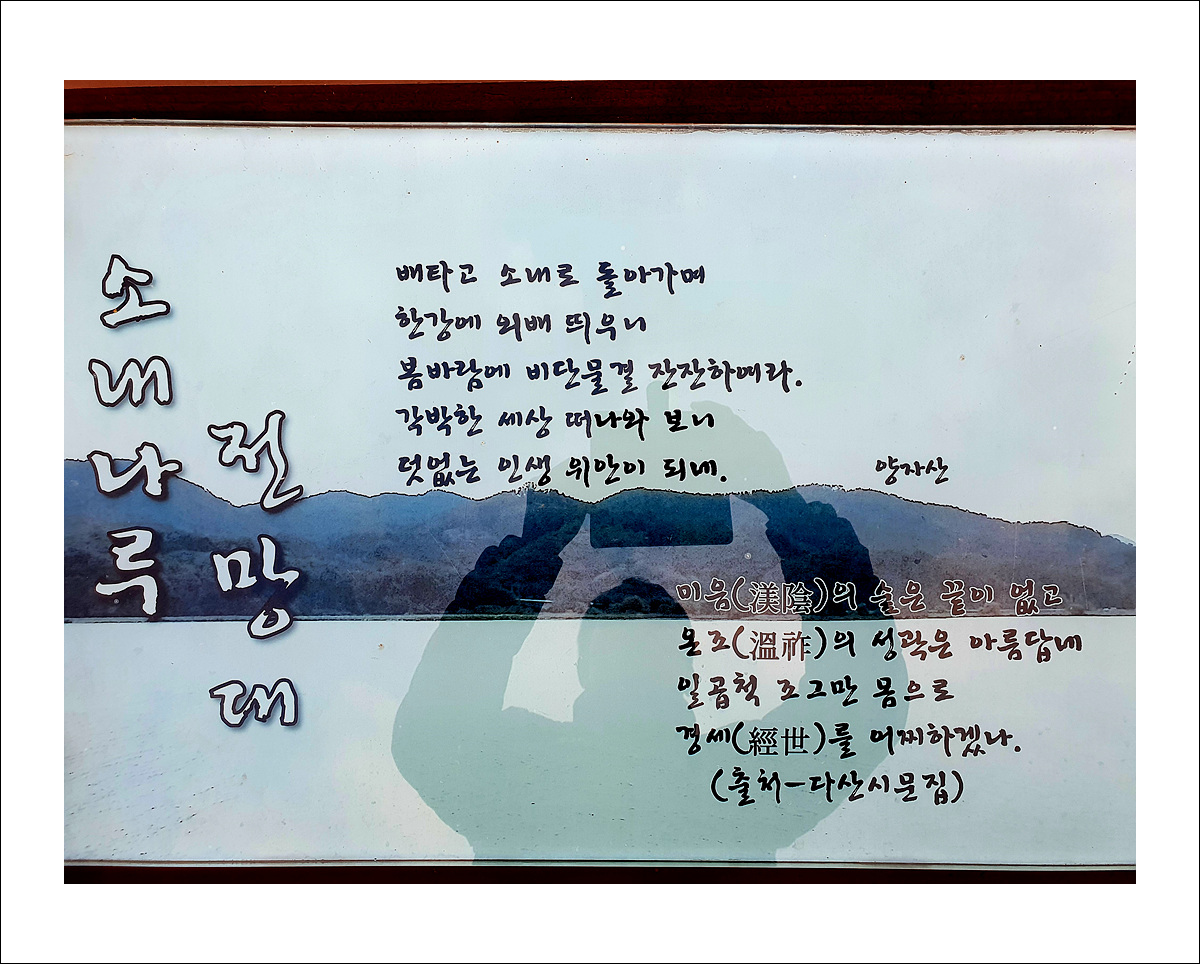 소내나루
전망대
배타고 소내로 돌아가며
한강에 외배 띄우니
봄바람에 비단물결 잔잔하여라.
각박한 세상 떠나와 보니
덧없는 인생 위안이 되네.
양자산
미음(渼陰)의 숲은 끝이 없고
온조(溫祚)의 성곽은 아름답네
일곱척 조그만 몸으로
경세(經世)를 어찌하겠나.
(출처-다산시문집)